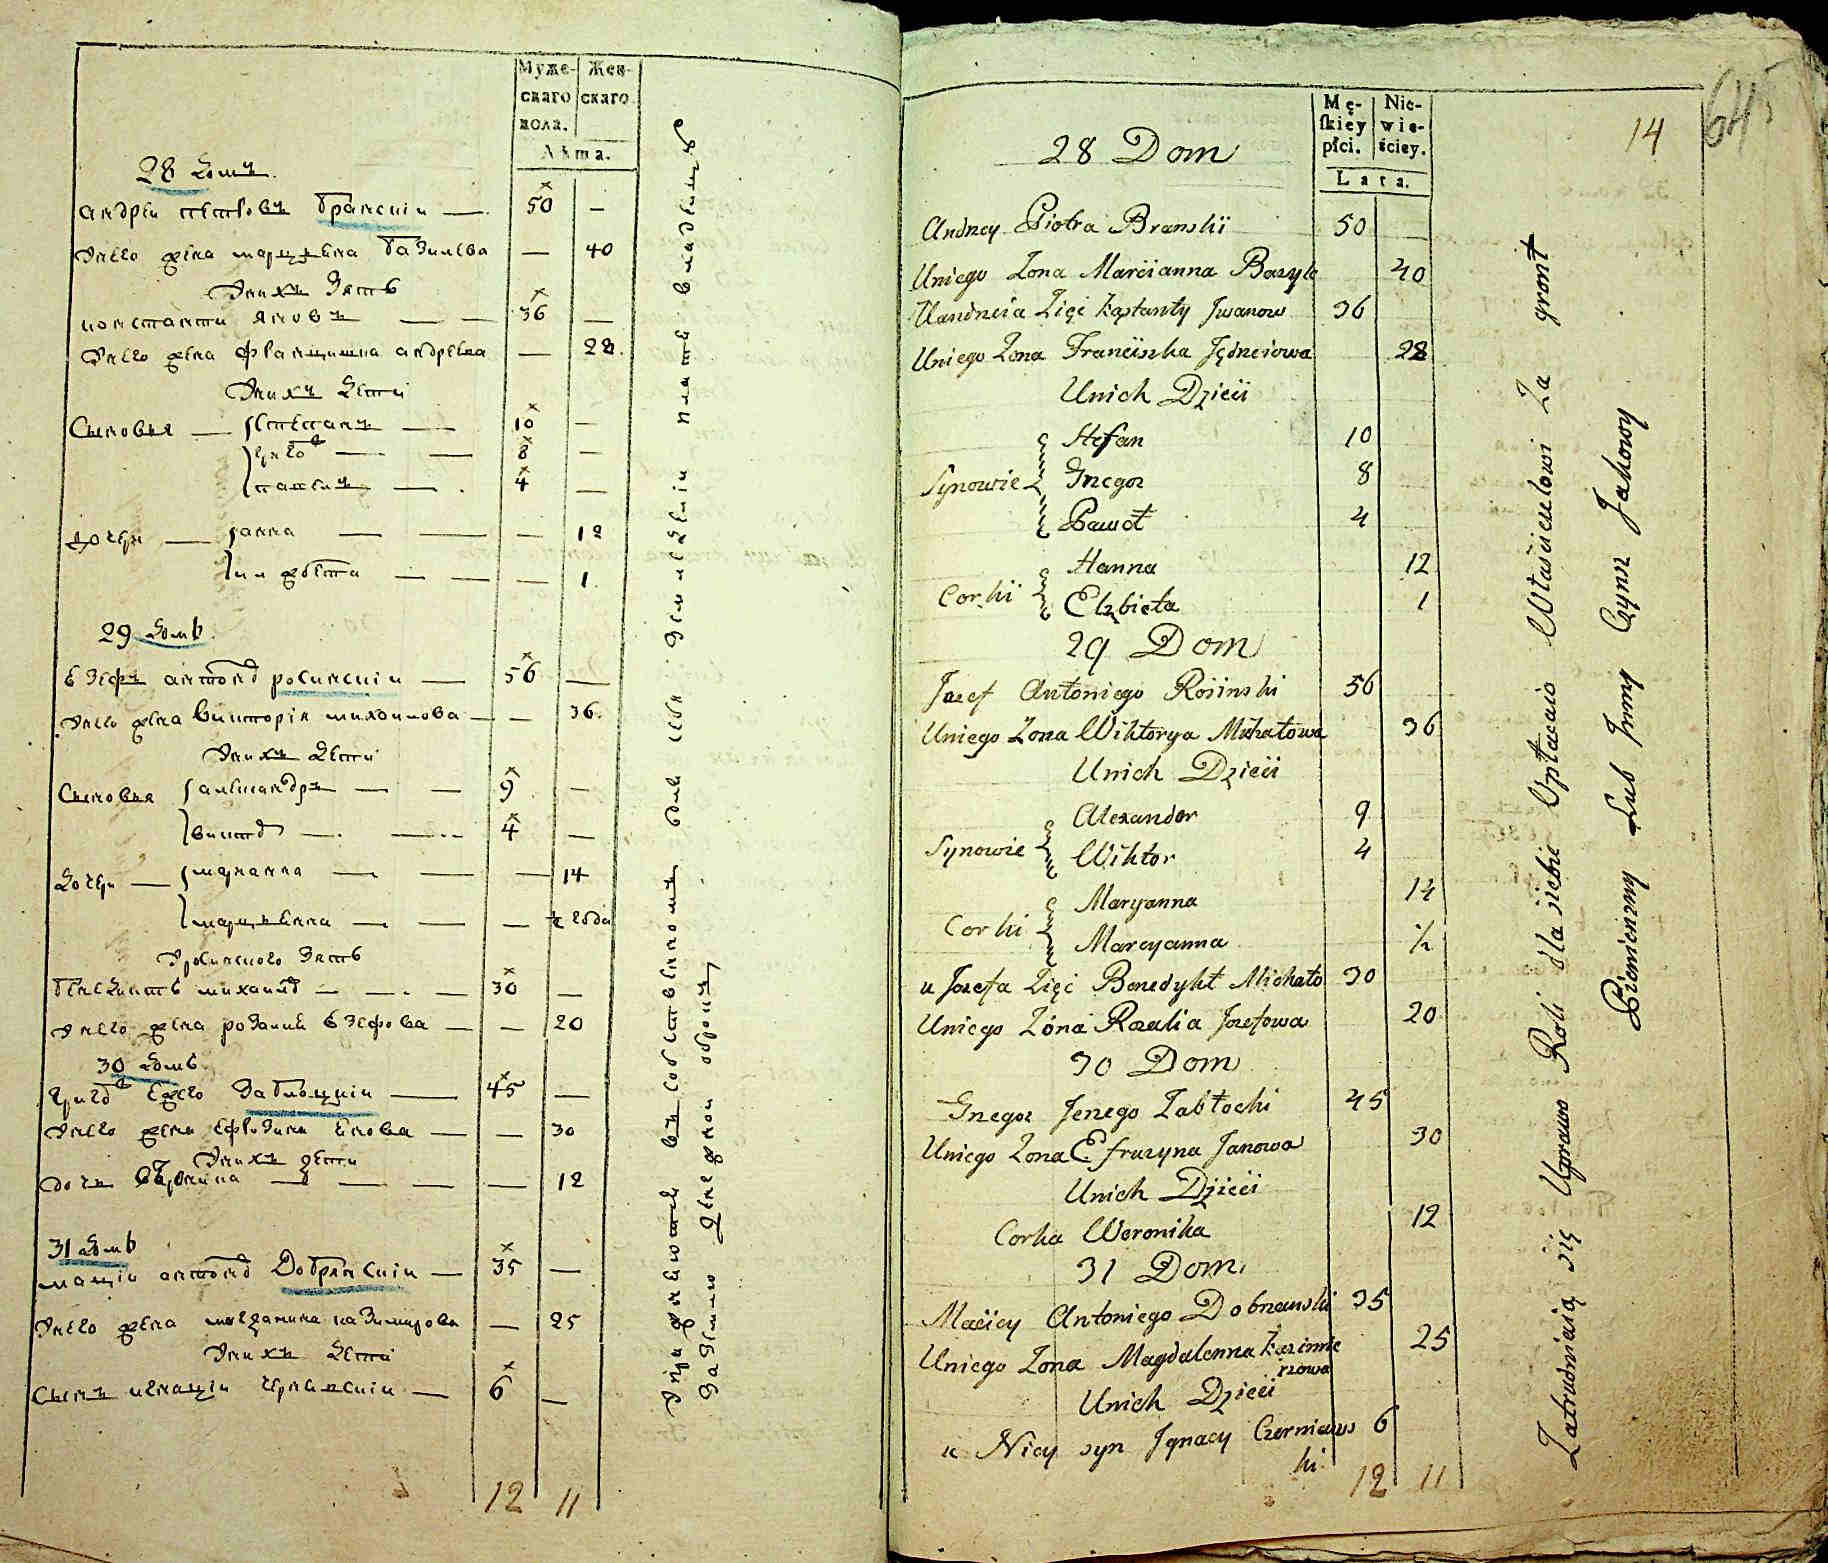 Муже-
скаго
пола.
Жен-
скаго
Лѣта.
28 домъ
андрей петровъ бранскій — 50 —
унего жена марцыяна базылева — 40
унихъ зять
константы яновъ — 36 —
унего жена францишка андрѣева — 28
унихъ дети
Сыновья — степанъ — 10 —
григор — 8 —
павелъ — 4 —
дочери — анна — 12
елжбета — 1
29 домъ
езефъ антонов росинскій — 56 —
унего жена викторія михайлова — 36
унихъ дети
Сыновья александръ — 9 —
виктор — 4 —
дочери — марианна — 14
марцыянна — ½ года
уросинского зять
бенедиктъ михайлов — 30 —
унего жена розалия езефова — 20
30 домъ
григор заблоцкій — 45 —
унего жена ефрозина янова — 30
унихъ дети
дочь вероника — 12
31 домъ
мацей антонов добрянскій — 35 —
унего жена магдалина казимирова — 25
унихъ дети
Сынъ игнацій чернявскій — 6 —
12 11
14
645
Mę-
skiey
płci.
Nie-
wie-
ściey.
Lata.
28 Dom
Andrzey Piotra Branski 50
Uniego Zona Marcianna Bazyle 40
Uandrzeia Zięć Kąstanty Jwanow 36
Uniego Zona Franciszka Jędrzeiowa 28
Unich Dzieci
Stefan 10
Synowie Grzegor 8
Paweł 4
Hanna 12
Corki Elzbieta 1
29 Dom
Jozef Antoniego Rosinski 56
Uniego Zona Wiktorya Michałowa 36
Unich Dzieci
Alexander 9
Synowie Wiktor 4
Maryanna 14
Corki Marcyanna ½
u Jozefa Zięć Benedykt Michało 30
Uniego Zona Rozalia Jozefowa 20
30 Dom
Grzegor Jerzego Zabłocki 45
Uniego Zona Efruzyna Janowa 30
Unich Dzieci
Corka Weronika 12
31 Dom
Maciey Antoniego Dobrzanski 35
Uniego Zona Magdalenna Kazimie
rzowa 25
Unich Dzieci
u Niey syn Jgnacy Czerniaws 6
ki
12 11
Zatrudniaią się Uprawo Roli dla siebie Opłacaio Właścicielowi Za gront
Pienienzny Lub Jnny Czynsz Jakowy